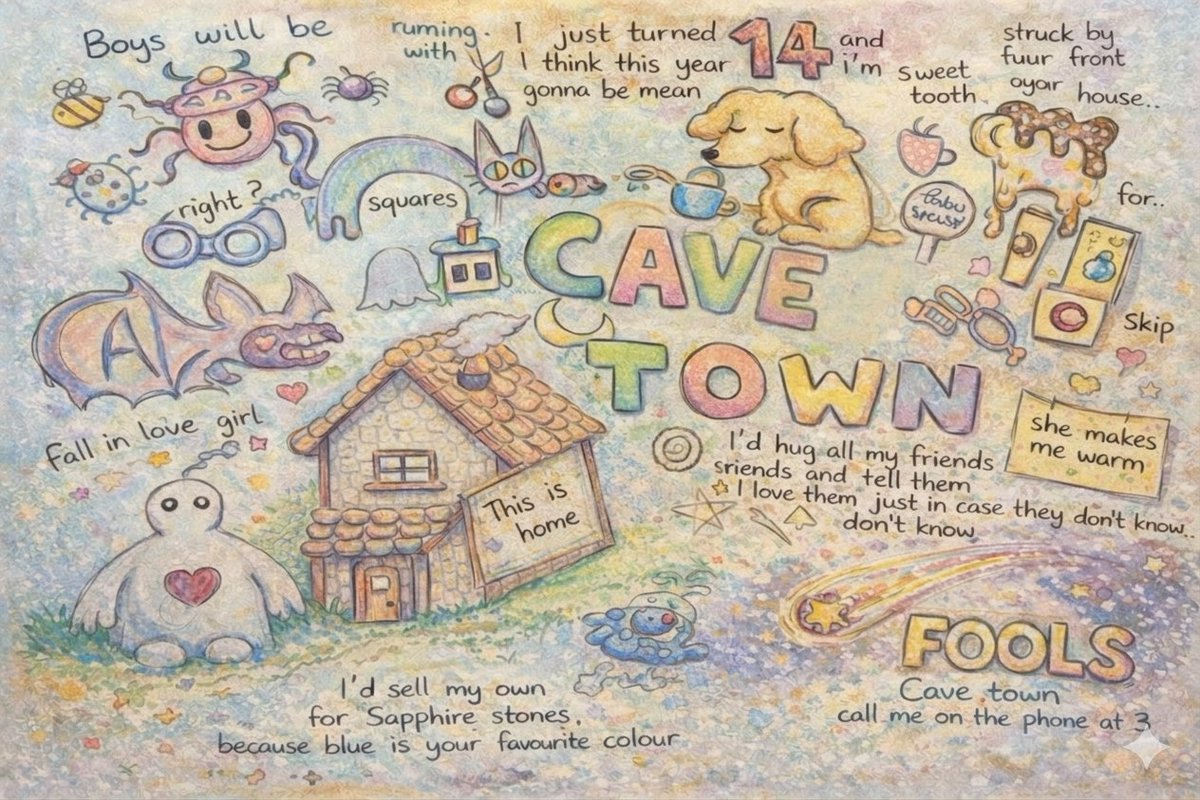 Boys will be
ruming.
with
I just turned 14 and
I think this year i'm
gonna be mean
sweet
tooth
struck by
fuur front
oyar house..
right?
squares
for..
CAVE
TOWN
A
Skip
fall in love girl
she makes
me warm
This is
home
I'd hug all my friends
sriends and tell them
I love them just in case they don't know..
don't know
FOOLS
Cave town
call me on the phone at 3
I'd sell my own
for Sapphire stones.
because blue is your favourite colour